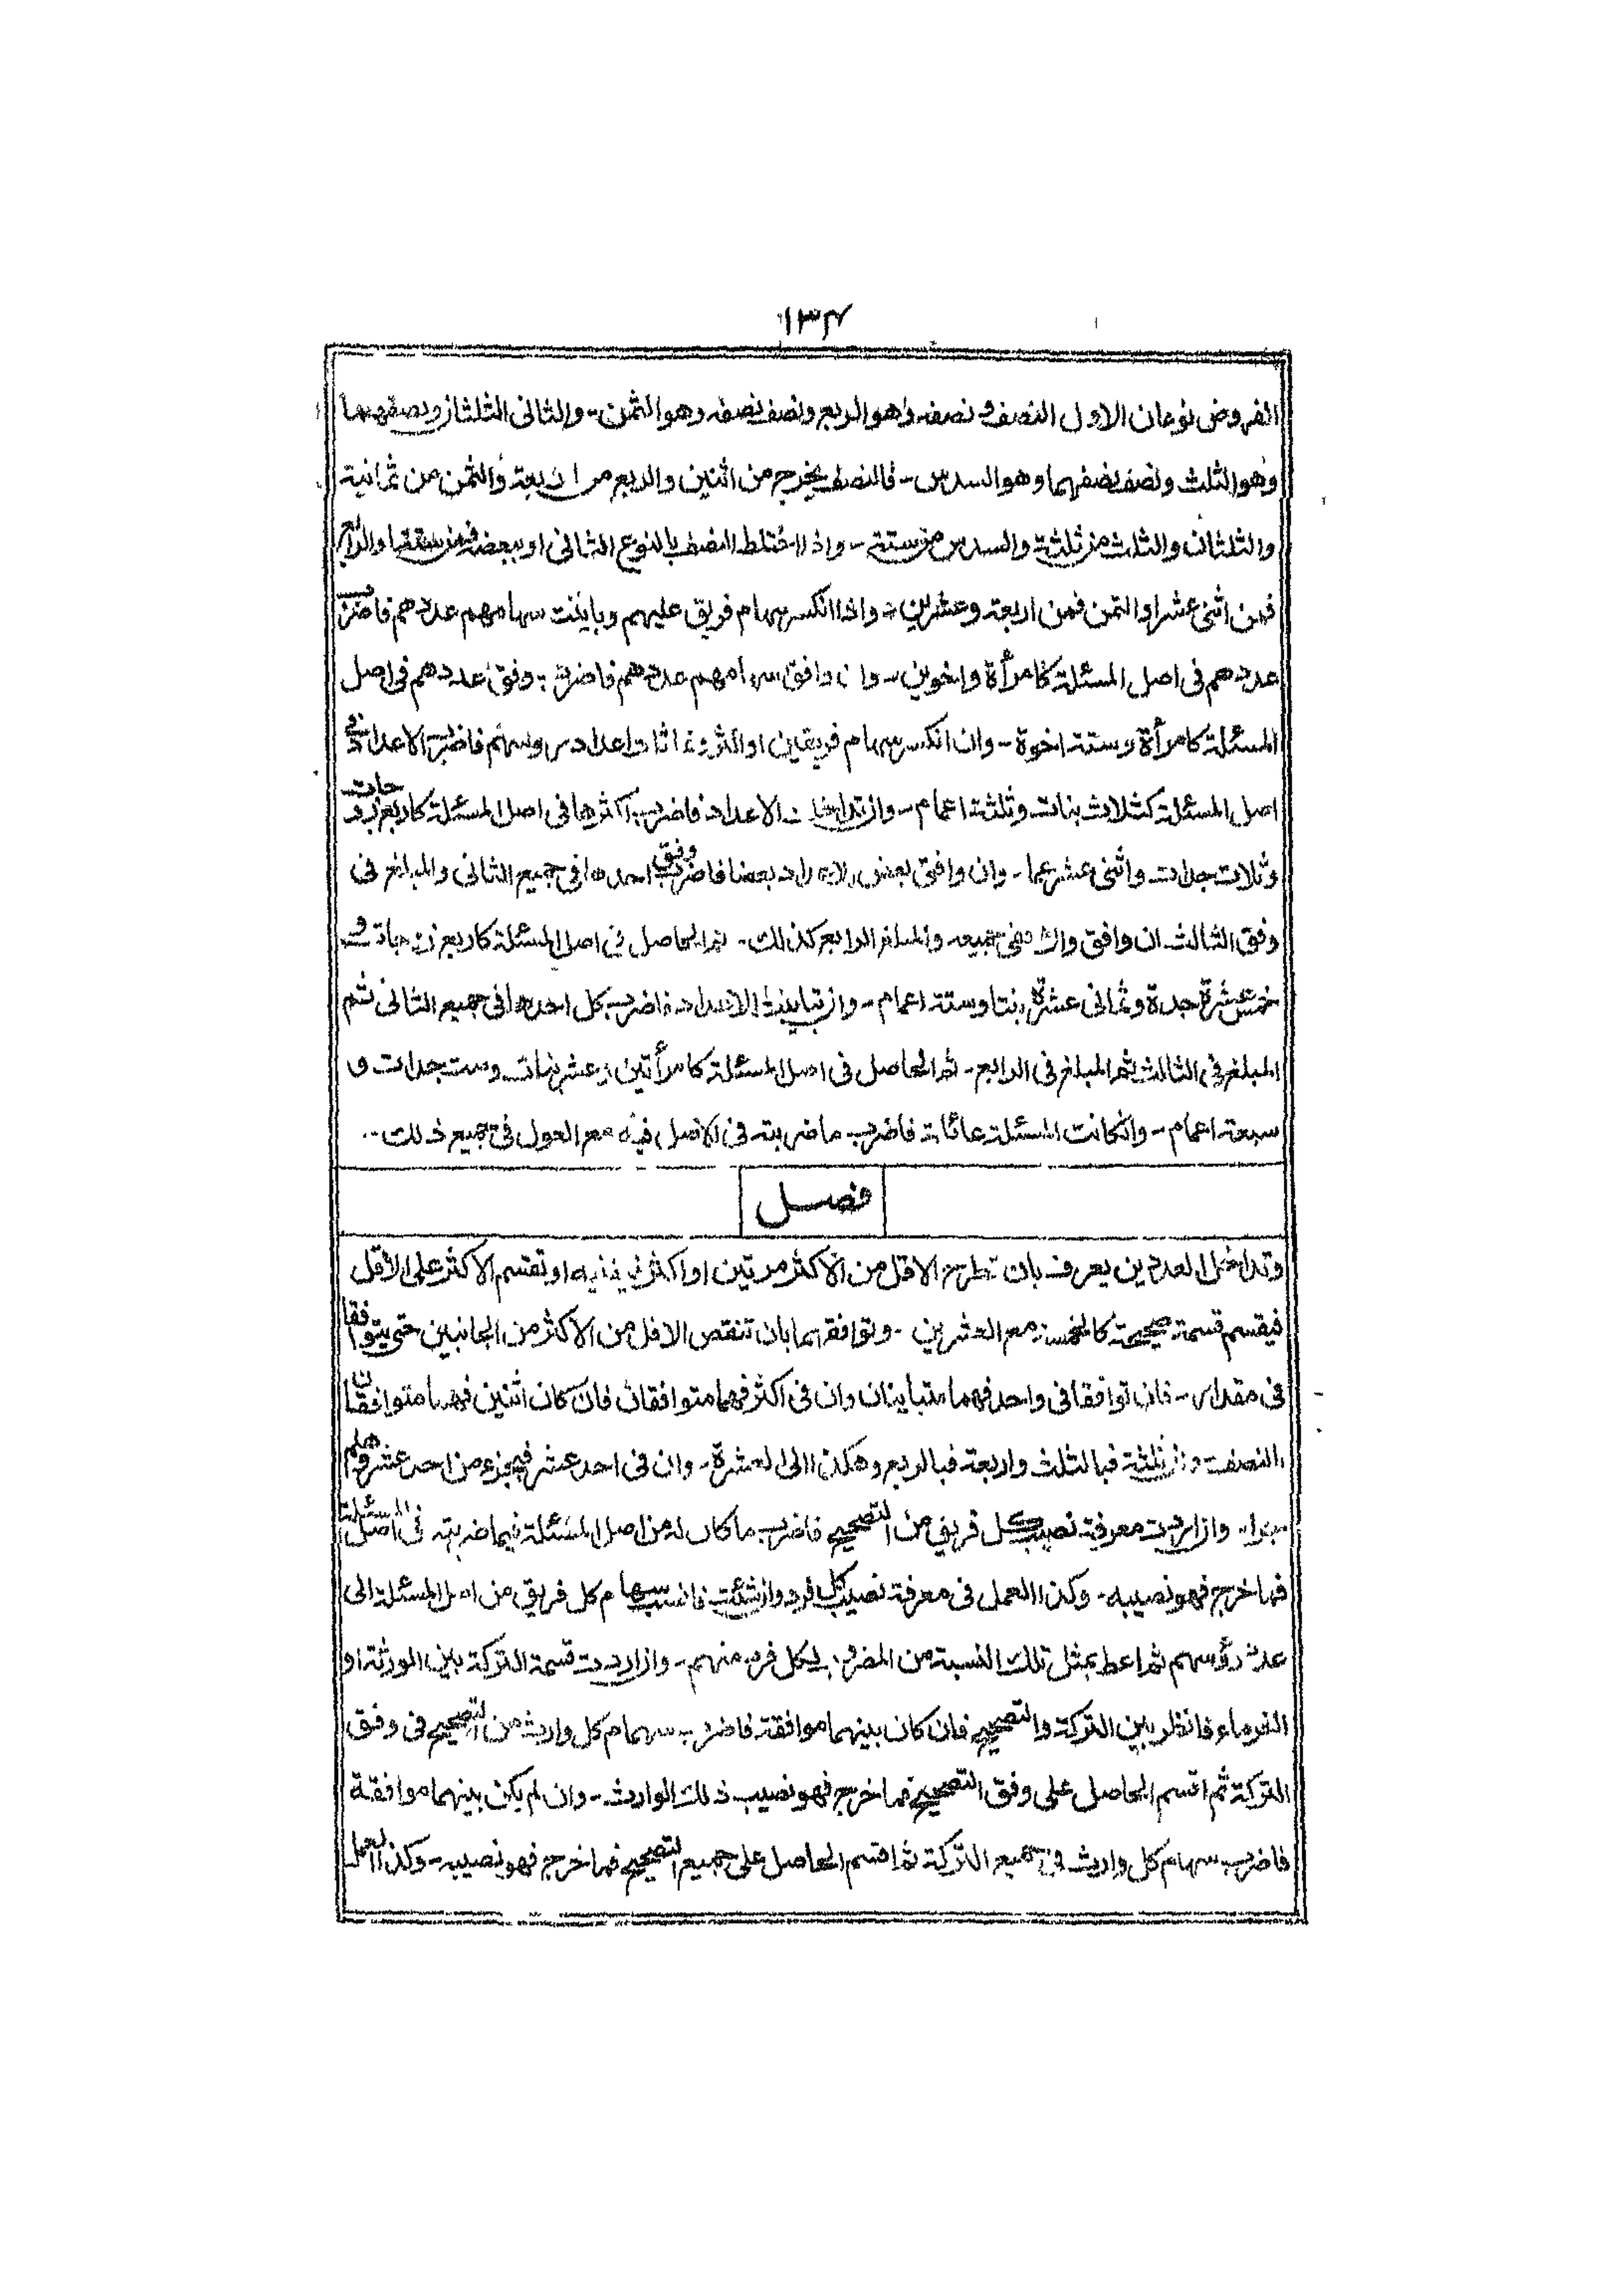 ١٣٤
الفروض نوعان الاول النصف و نصفه وهو الربع ونصف نصفه وهو الثمن - والثاني الثلثان ونصفهما
وهو الثلث ونصف نصفهما وهو السدس - فالنصف يخرج من اثنين والربع من اربعة والثمن من ثمانية
والثلثان والثلث من ثلثة والسدس من ستة - واذا اختلط النصف بالنوع الثاني او ببعضه فمن ستة او الربع
فمن اثنى عشر او الثمن فمن اربعة وعشرين - واذا انكسر سهام فريق عليهم وباينت سهامهم عددهم فاضرب
عددهم فى اصل المسئلة كامرأة واخوين - وان وافق سهامهم عددهم فاضرب وفق عددهم فى اصل
المسئلة كامرأة وستة اخوة - وان انكسر سهام فريقين او اكثر وتماثلت اعداد رؤسهم فاضرب احد الاعداد فى
اصل المسئلة كثلاث بنات وثلثة اعمام - وان تداخلت الاعداد فاضرب اكثرها فى اصل المسئلة كاربع زوجات
وثلاث جدات واثنى عشر عما - وان وافق بعض الاعداد بعضا فاضرب وفق احدها فى جميع الثانى والمبلغ فى
وفق الثالث ان وافق والا ففى جميعه والمبلغ الرابع كذلك - ثم الحاصل فى اصل المسئلة كاربع زوجات و
خمس عشرة جدة وثمانى عشرة بنتا وستة اعمام - وان تباينت الاعداد فاضرب كل احدها فى جميع الثانى ثم
المبلغ فى الثالث ثم المبلغ فى الرابع - ثم الحاصل فى اصل المسئلة كامرأتين وعشر بنات وست جدات و
سبعة اعمام - وان كانت المسئلة عائلة فاضرب ما ضربته فى الاصل فيه مع العول فى جميع ذلك -
فصل
وتداخل العددين يعرف بان تطرح الاقل من الاكثر مرتين او اكثر فيفنيه او تقسم الاكثر على الاقل
فيقسم قسمة صحيحة كالخمسة مع العشرين - وتوافقهما بان تنقص الاقل من الاكثر من الجانبين حتى يتوافقا
فى مقدار - فان توافقا فى واحد فهما متباينان وان فى اكثر فهما متوافقان فان كان اثنين فهما متوافقان
بالنصف وان ثلثة فبالثلث واربعة فبالربع وهكذا الى العشرة - وان فى احد عشر فبجزء من احد عشر وهلم
جرا - وان اردت معرفة نصيب كل فريق من التصحيح فاضرب ما كان له من اصل المسئلة فيما ضربته فى اصل المسئلة
فما خرج فهو نصيبه - وكذا العمل فى معرفة نصيب كل فرد وان شئت فانسب سهام كل فريق من اصل المسئلة الى
عدد رؤسهم ثم اعط بمثل تلك النسبة من المضروب لكل فرد منهم - وان اردت قسمة التركة بين الورثة او
الغرماء فانظر بين التركة والتصحيح فان كان بينهما موافقة فاضرب سهام كل وارث من التصحيح فى وفق
التركة ثم اقسم الحاصل على وفق التصحيح فما خرج فهو نصيب ذلك الوارث - وان لم يكن بينهما موافقة
فاضرب سهام كل وارث فى جميع التركة ثم اقسم الحاصل على جميع التصحيح فما خرج فهو نصيبه - وكذا العمل